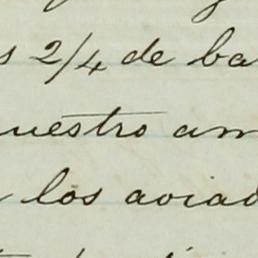 s 2/4 de ba
uestro am
los aviad